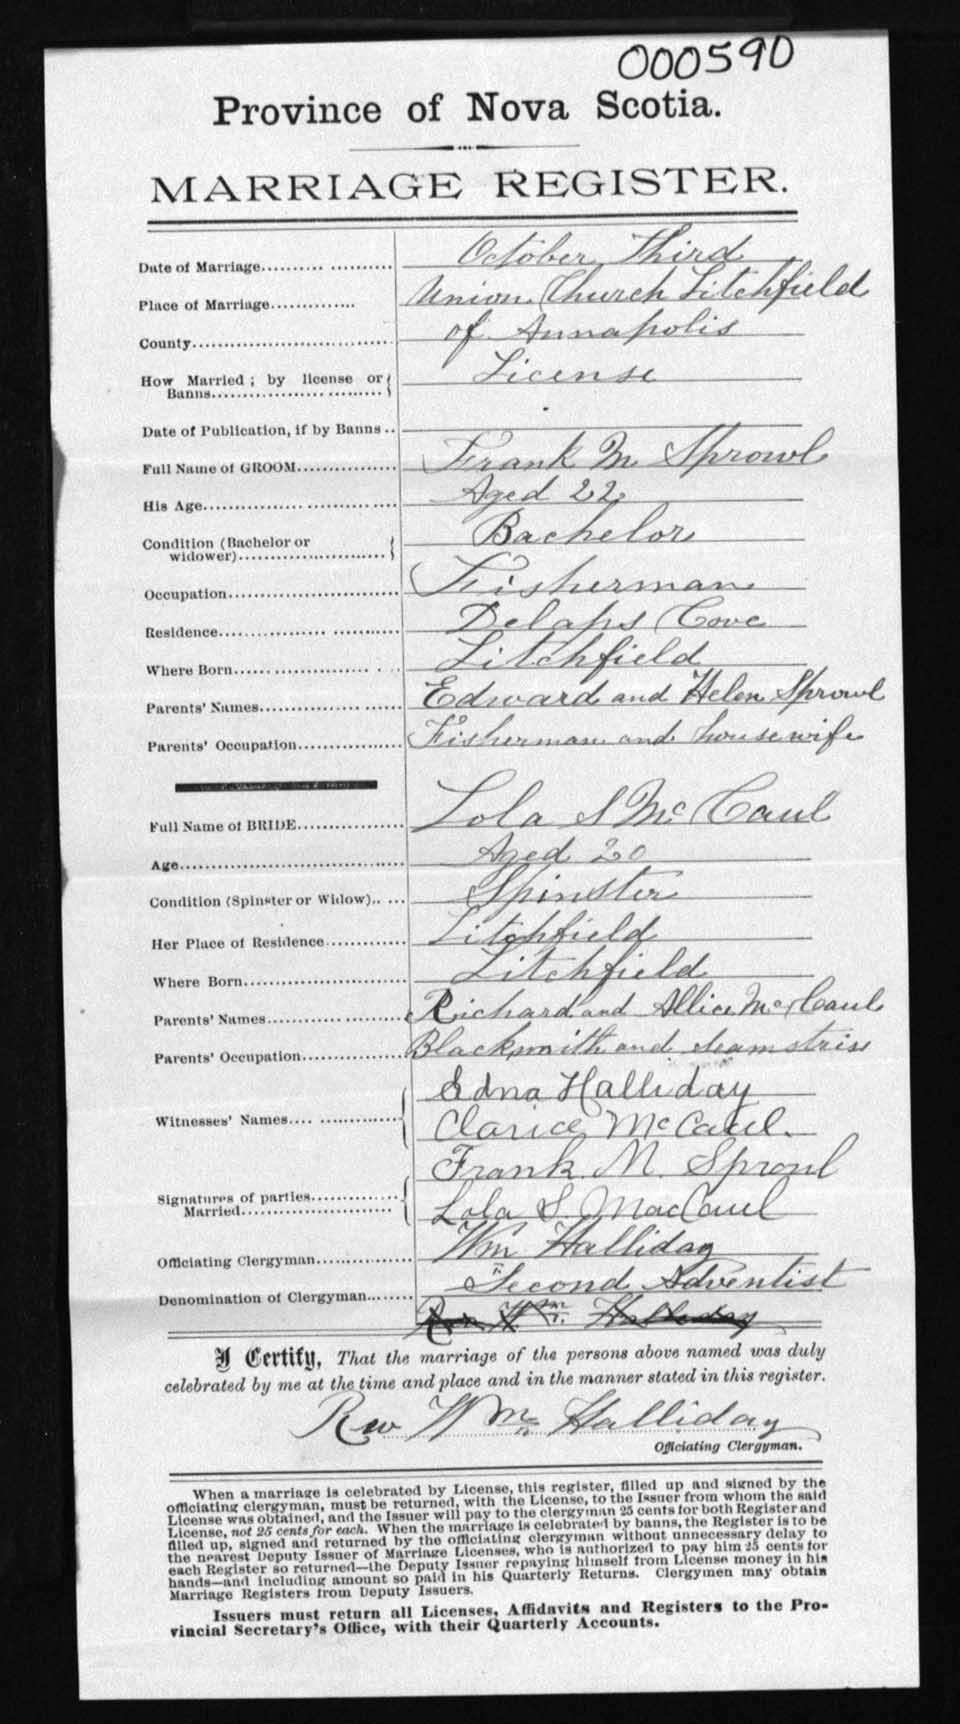 000590
Province of Nova Scotia.
MARRIAGE REGISTER.
Date of Marriage.................... October Third
Place of Marriage.............. Union Church Litchfield
County................................ of Annapolis
How Married ; by license or
Banns............................ License
Date of Publication, if by Banns ..
Full Name of GROOM................ Frank M Sprowl
His Age............................... Aged 22
Condition (Bachelor or
widower)........................ Bachelor
Occupation........................... Fisherman
Residence............................ Delaps Cove
Where Born........................ Litchfield
Parents' Names..................... Edward and Helen Sprowl
Parents' Occupation................ Fisherman and housewife
Full Name of BRIDE................ Lola S Mc Caul
Age.................................... Aged 20
Condition (Spinster or Widow)..... Spinster
Her Place of Residence............. Litchfield
Where Born.......................... Litchfield
Parents' Names..................... Richard and Allice Mc Caul
Parents' Occupation................ Blacksmith and seamstriss
Witnesses' Names.... ............. Edna Halliday
Clarice McCaul.
Signatures of parties............... Frank. M. Sproul
Married......................... Lola S. MacCaul
Officiating Clergyman............... Wm Halliday
Denomination of Clergyman........ Second Adventist
Rev Wm. Halliday
I Certify, That the marriage of the persons above named was duly
celebrated by me at the time and place and in the manner stated in this register.
Rev Wm Halliday
Officiating Clergyman.
When a marriage is celebrated by License, this register, filled up and signed by the
officiating clergyman, must be returned, with the License, to the Issuer from whom the said
License was obtained, and the Issuer will pay to the clergyman 25 cents for both Register and
License, not 25 cents for each. When the marriage is celebrated by banns, the Register is to be
filled up, signed and returned by the officiating clergyman without unnecessary delay to
the nearest Deputy Issuer of Marriage Licenses, who is authorized to pay him 25 cents for
each Register so returned—the Deputy Issuer repaying himself from License money in his
hands—and including amount so paid in his Quarterly Returns. Clergymen may obtain
Marriage Registers from Deputy Issuers.
Issuers must return all Licenses, Affidavits and Registers to the Pro-
vincial Secretary's Office, with their Quarterly Accounts.